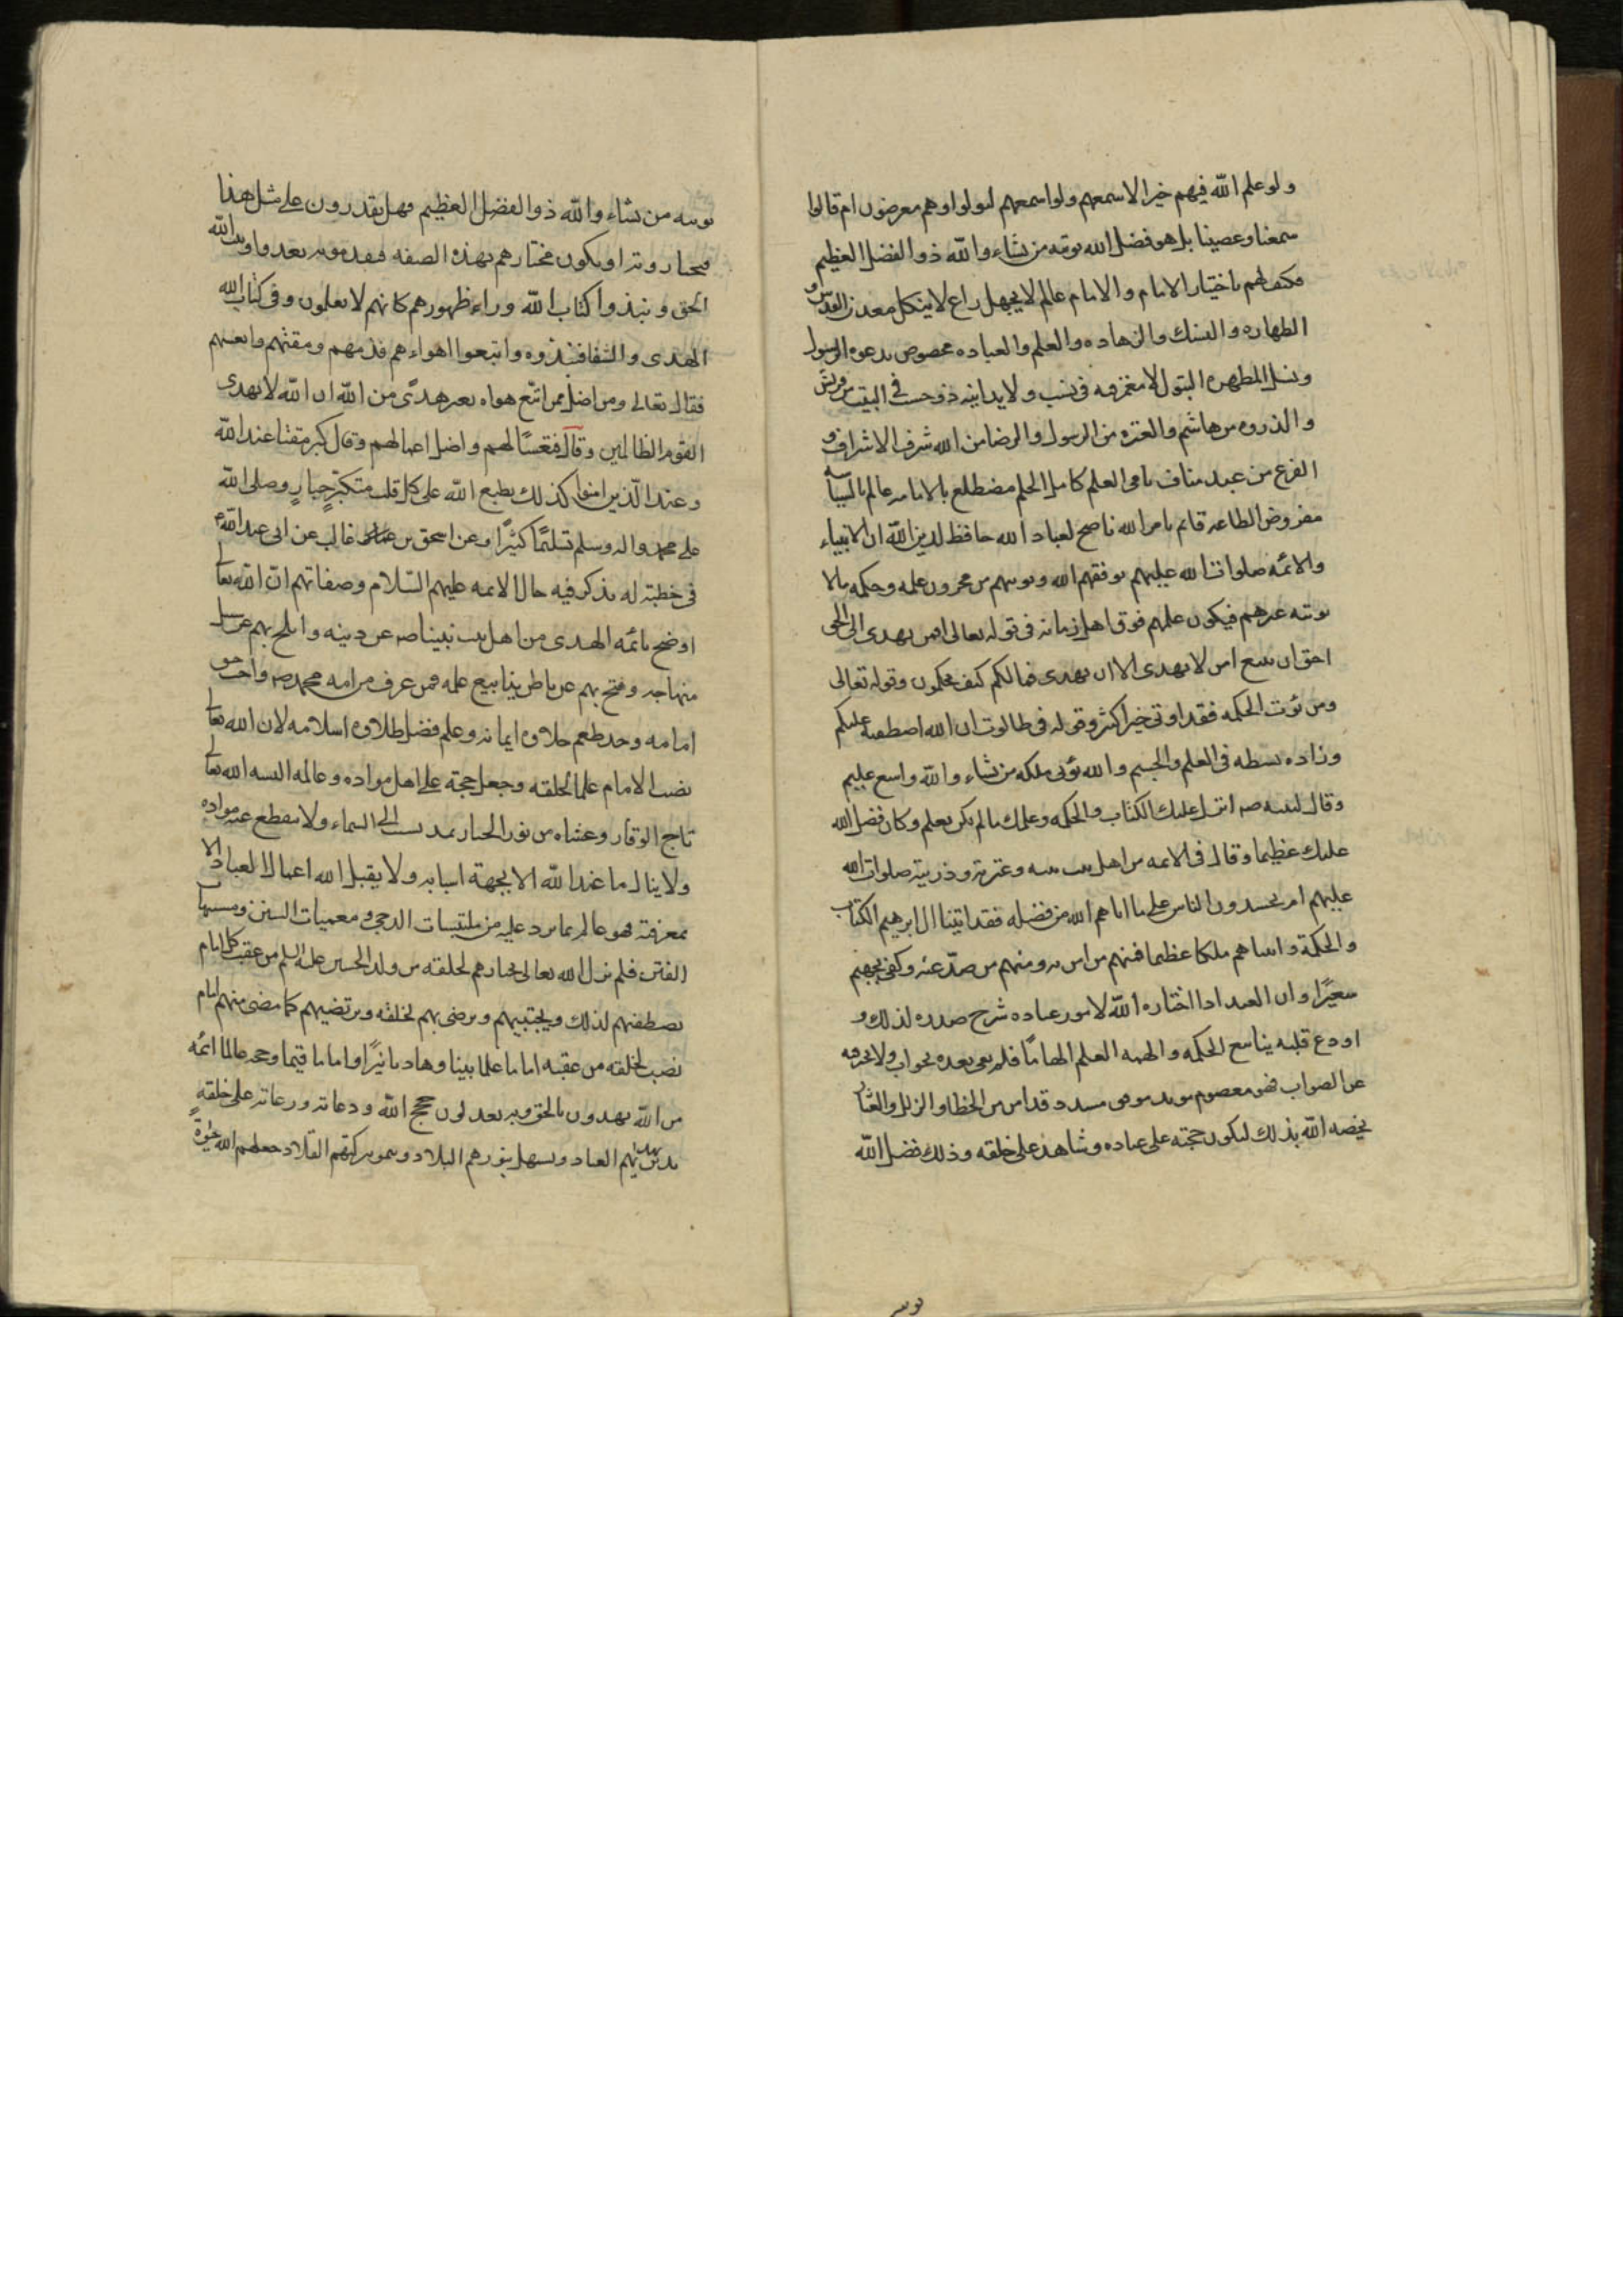 ولو علم الله فيهم خيرا لاسمعهم ولو اسمعهم لتولوا وهم معرضون ام قالوا
سمعنا وعصينا بل هو فضل الله يوتيه من يشاء والله ذو الفضل العظيم
فكيف لهم باختيار الامام والامام عالم لا يجهل راع لا ينكل معدن القدس و
الطهاره والنسك والزهاده والعلم والعباده مخصوص بدعوه الرسول
ونسل المطهره البتول لا مغمز فيه في نسب ولا يدانيه ذو حسب في البيت من قريش
والذروه من هاشم والعتره من الرسول والرضا من الله شرف الاشراف و
الفرع من عبد مناف نامى العلم كامل الحلم مضطلع بالامامه عالم بالسياسه
مفروض الطاعه قائم بامر الله ناصح لعباد الله حافظ لدين الله ان الانبياء
والائمه صلوات الله عليهم يوفقهم الله ويوتيهم من مخزون علمه وحكمه مالا
يوتيه غيرهم فيكون علمهم فوق اهل زمانه في قوله تعالى افمن يهدى الى الحق
احق ان يتبع امن لا يهدى الا ان يهدى فمالكم كيف تحكمون وقوله تعالى
ومن يؤت الحكمه فقد اوتى خيرا كثيرا وقوله في طالوت ان الله اصطفيه عليكم
وزاده بسطه في العلم والجسم والله يؤتى ملكه من يشاء والله واسع عليم
وقال لنبيه صه انزل عليك الكتاب والحكمه وعلمك مالم تكن تعلم وكان فضل الله
عليك عظيما وقال في الائمه من اهل بيت نبيه وعترته وذريته صلوات الله
عليهم ام يحسدون الناس على ما اتاهم الله من فضله فقد اتينا ال ابرهيم الكتاب
والحكمة واتيناهم ملكا عظيما فمنهم من امن به ومنهم من صدّ عنه وكفى بجهنم
سعيرًا وان العبد اذا اختاره الله لامور عباده شرح صدره لذلك و
اودع قلبه ينابيع الحكمه والهمه العلم الهامًا فلم يعى بعده بجواب ولا يحير فيه
عن الصواب فهو معصوم مويد موفق مسدد قد امن من الخطا والزلل والعثار
يخصه الله بذلك ليكون حجته على عباده وشاهده على خلقه وذلك فضل الله
يوتيه من يشاء والله ذو الفضل العظيم فهل يقدرون على مثل هذا
فيختارونه او يكون مختارهم بهذه الصفه فيقدمونه تعدوا وبيت الله
الحق ونبذوا كتاب الله وراء ظهورهم كانهم لا يعلمون وفى كتاب الله
الهدى والشفا فنبذوه واتبعوا اهواءهم فذمهم ومقتهم واتعسهم
فقال تعالى ومن اضل ممن اتبع هواه بغير هدًى من الله ان الله لا يهدى
القوم الظالمين وقال فتعسًا لهم واضل اعمالهم وقال كبر مقتا عند الله
وعند الّذين امنوا كذلك يطبع الله على كل قلب متكبّرٍ جبارٍ وصلى الله
على محمد واله وسلم تسليمًا كثيرًا وعن اسحق بن غالب عن ابى عبد الله ع
فى خطبته له يذكر فيه حال الائمه عليهم السّلام وصفاتهم انّ الله تعالى
اوضح بائمه الهدى من اهل بيت نبينا صه عن دينه وابلج بهم عن سبيل
منهاجه وفتح بهم عن باطن ينابيع علمه فمن عرف من امه محمد صه واجب حق
امامه وجد طعم حلاوه ايمانه وعلم فضل طلاوه اسلامه لان الله تعالى
نصب الامام علما لخلقه وجعل حجة على اهل مواده وعالمه البسه الله تعالى
تاج الوقار وغشاه من نور الجبار يمد بسبب الى السماء ولا ينقطع عنه مواده
ولا ينال ما عند الله الا بجهة اسبابه ولا يقبل الله اعمال العباد الا
بمعرفته فهو عالم بما يرد عليه من ملتبسات الدجى ومعميات السنن ومشبهات
الفتن فلم يزل الله تعالى يختارهم لخلقه من ولد الحسين عليه السلم من عقب كل امام
يصطفيهم لذلك ويجتبيهم ويرضى بهم لخلقه ويرتضيهم كلما مضى منهم امام
نصب لخلقه من عقبه اماما علما بينا وهاديا نيرًا واماما قيما وحجه عالما ائمه
من الله يهدون بالحق وبه يعدلون حجج الله ودعاته ورعاته على خلقه
يدين بهديهم العباد ويستهل بنورهم البلاد وينمو ببركتهم التلاد جعلهم الله حيوة